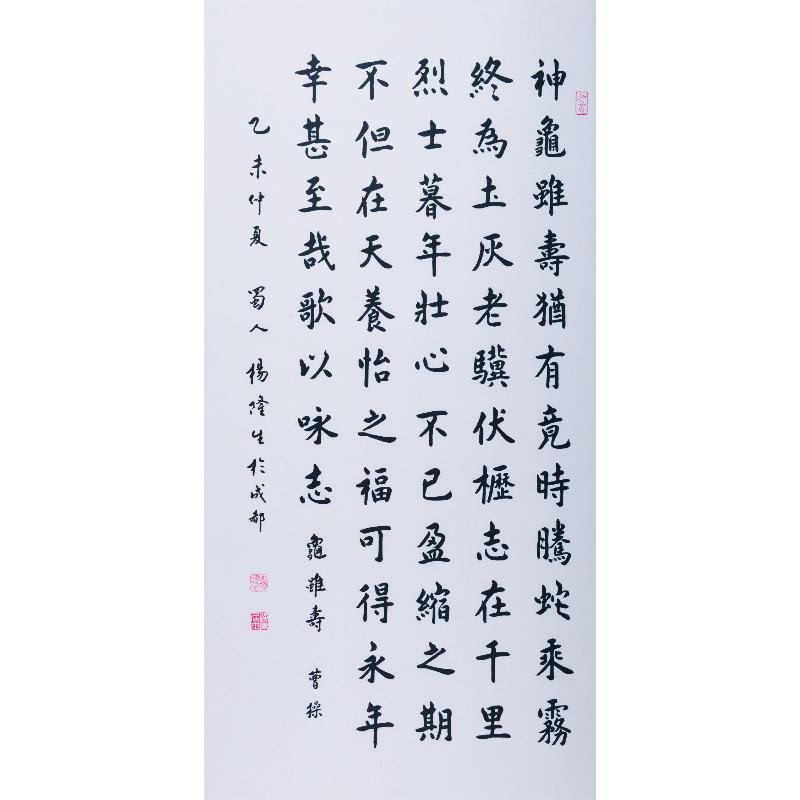 神龜雖壽猶有竟時騰蛇乘霧
終為土灰老驥伏櫪志在千里
烈士暮年壯心不已盈縮之期
不但在天養怡之福可得永年
幸甚至哉歌以咏志 龜雖壽 曹操
乙未仲夏 蜀人楊隆生於成都